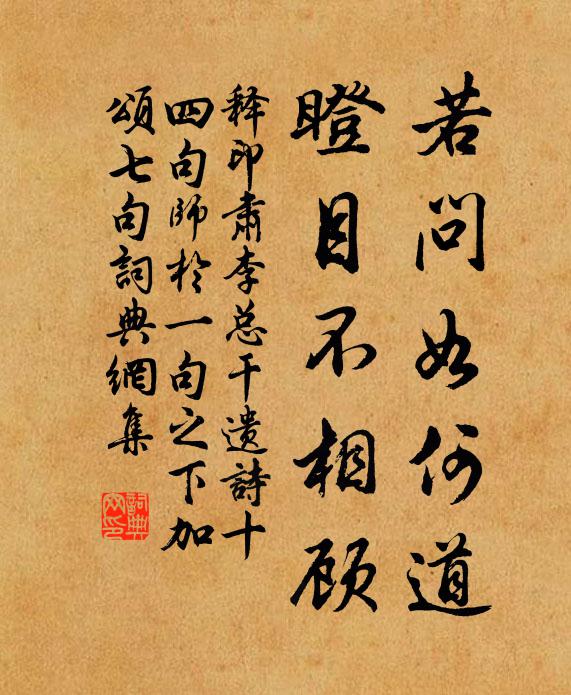 若問如何道
瞪目不相顾
释印肃李总干遗詩十
四句師於一句之下加
頌七句詞典網集
詞典
网印